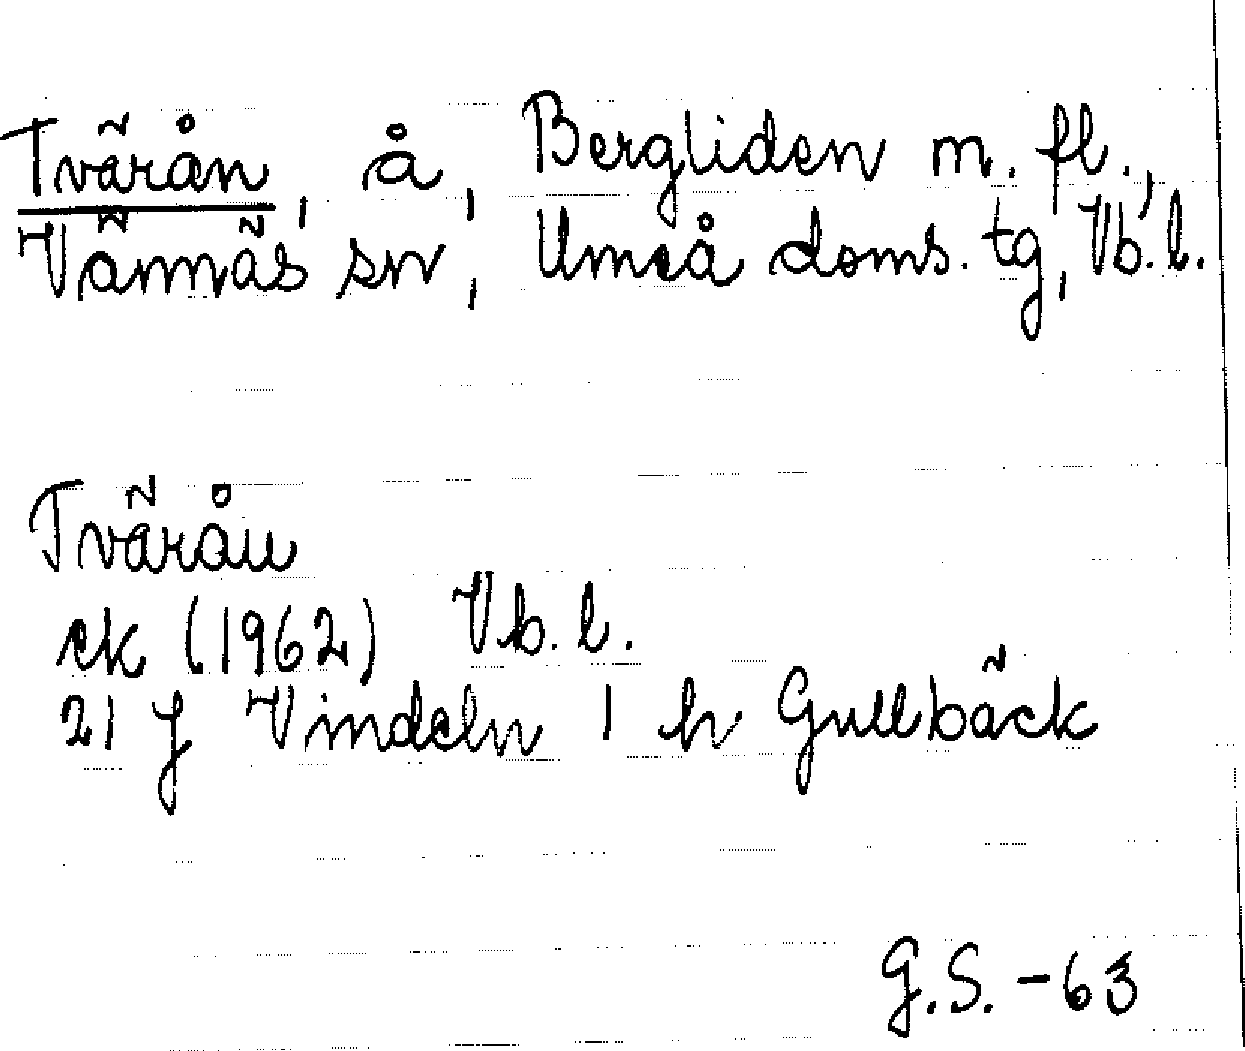 Tvärån, å, Bergliden m. fl.,
Vännäs sn, Umeå doms. tg, Vb. l.
Tvärån
ek (1962) Vb. l.
21 J Vindeln 1 h Gullbäck
G.S. -63